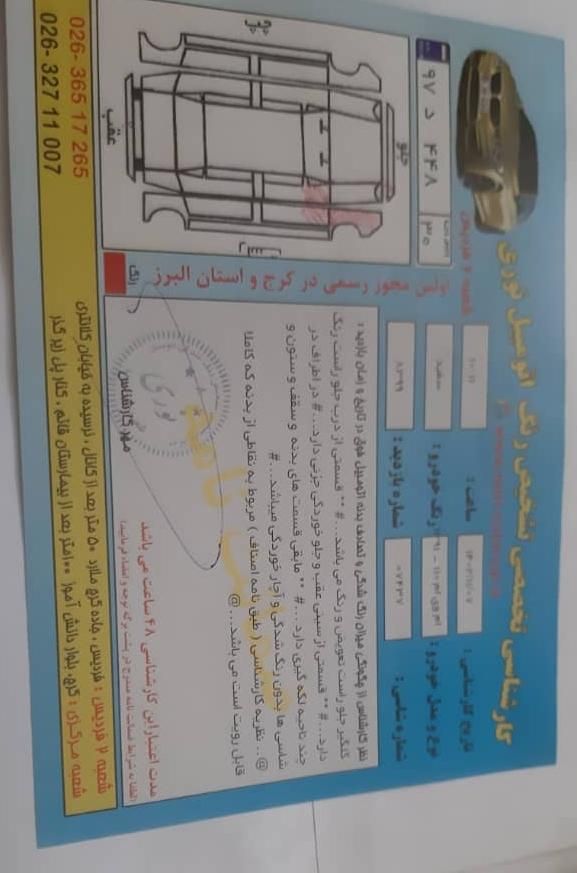 کارشناسی تخصصی تشخیص رنگ اتومبیل نوری
شعبه ۲ فردیس
تاریخ کارشناسی : ساعت : ۱۰:۱۱
نوع و مدل خودرو : ام وی ام ۱۱۰ - ۹۱ رنگ خودرو : سفید
شماره شاسی : ۰۷۴۳۷ شماره بازدید : ۸۳۰۹۹
۹۷ د ۴۴۸
اولین مجوز رسمی در کرج و استان البرز
رنگ
جلو
عقب
نظر کارشناس از چگونگی میزان رنگ شدگی و تصادف بدنه اتومبیل فوق در تاریخ و زمان بازدید :
گلگیر جلو راست تعویض و رنگ می باشد...# ** قسمتی از درب جلو راست رنگ
دارد...# ** قسمتی از سینی عقب و جلو خوردگی جزئی دارد...# در اطراف در
چند ناحیه لکه گیری دارد ...# ** مابقی قسمت های بدنه و سقف و ستون و
شاسی ها بدون رنگ شدگی و آچار خوردگی میباشد...#
@ .. نظریه کارشناسی ( طبق نامه اصناف ) مربوط به نقاطی از بدنه که کاملا
قابل رویت است می باشد...@
نوری
مهر کارشناس
مدت اعتبار این کارشناسی ۴۸ ساعت می باشد
شعبه ۲ فردیس : فردیس ، جاده کرج ملارد ۵۰ متر بعد از کانال ، نرسیده به خیابان کلانتری
026- 365 17 265
شعبه مرکزی : کرج، بلوار دانش آموز ۱۰۰متر بعد از بیمارستان قائم ، کنار پل زیر گذر
026- 327 11 007